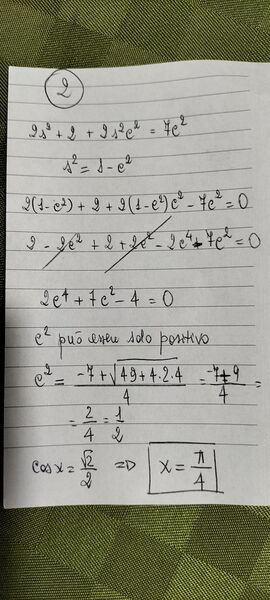 2
2s² + 2 + 2s²c² = 7c²
s² = 1 - c²
2(1-c²) + 2 + 2(1-c²)c² - 7c² = 0
2 - 2c² + 2 + 2c² - 2c⁴ - 7c² = 0
2c⁴ + 7c² - 4 = 0
c² può essere solo positivo
c² = (-7 + √(49 + 4·2·4))/4 = (-7+9)/4 =
= 2/4 = 1/2
cos x = √2/2 => x = π/4